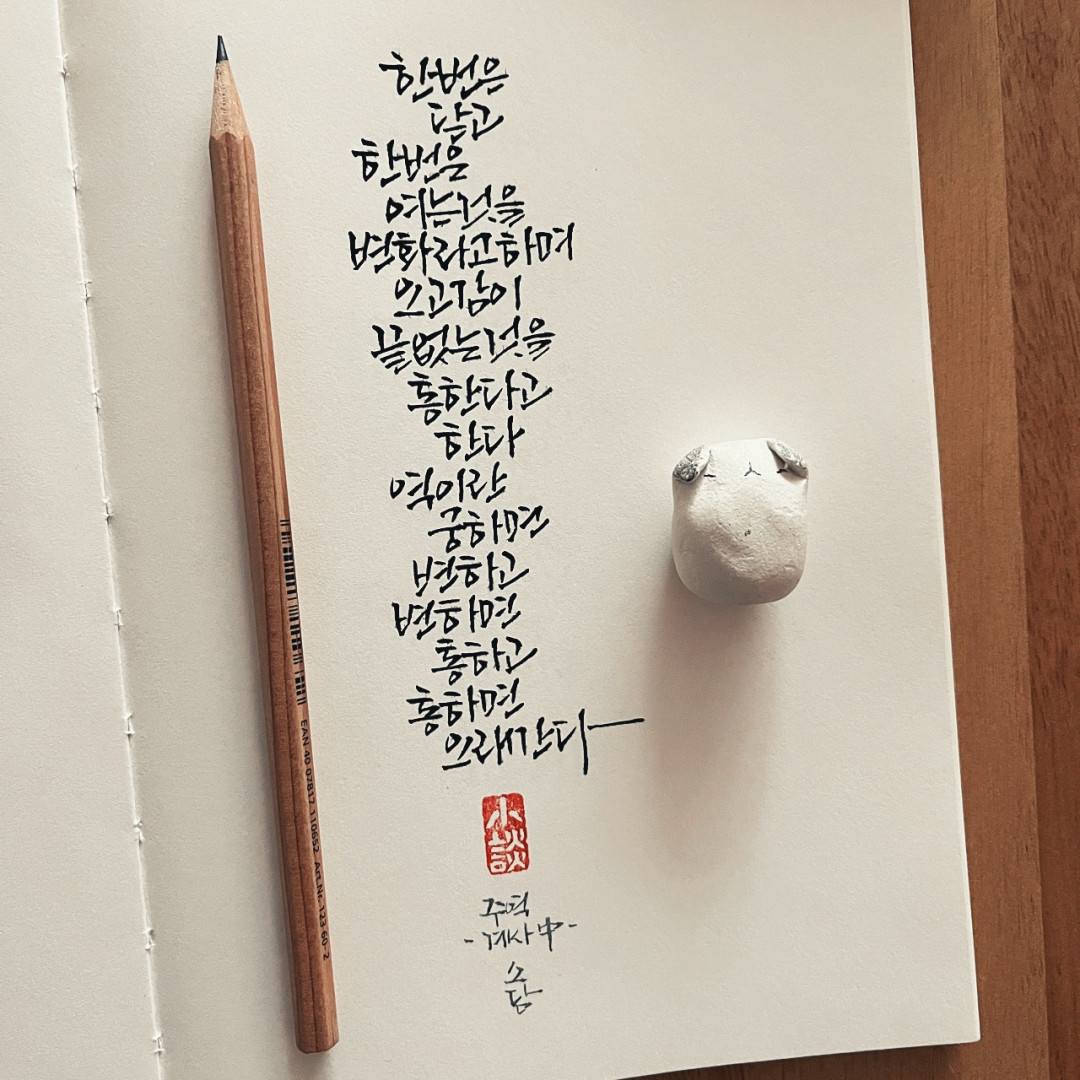 한번은
닫고
한번은
여는것을
변화라고하며
오고감이
끝없는것을
통한다고
한다
역이란
궁하면
변하고
변하면
통하고
통하면
오래간다
小談
주역
-계사中-
소담
EAN 40 07817 110652 Art.Nr. 123 60-2